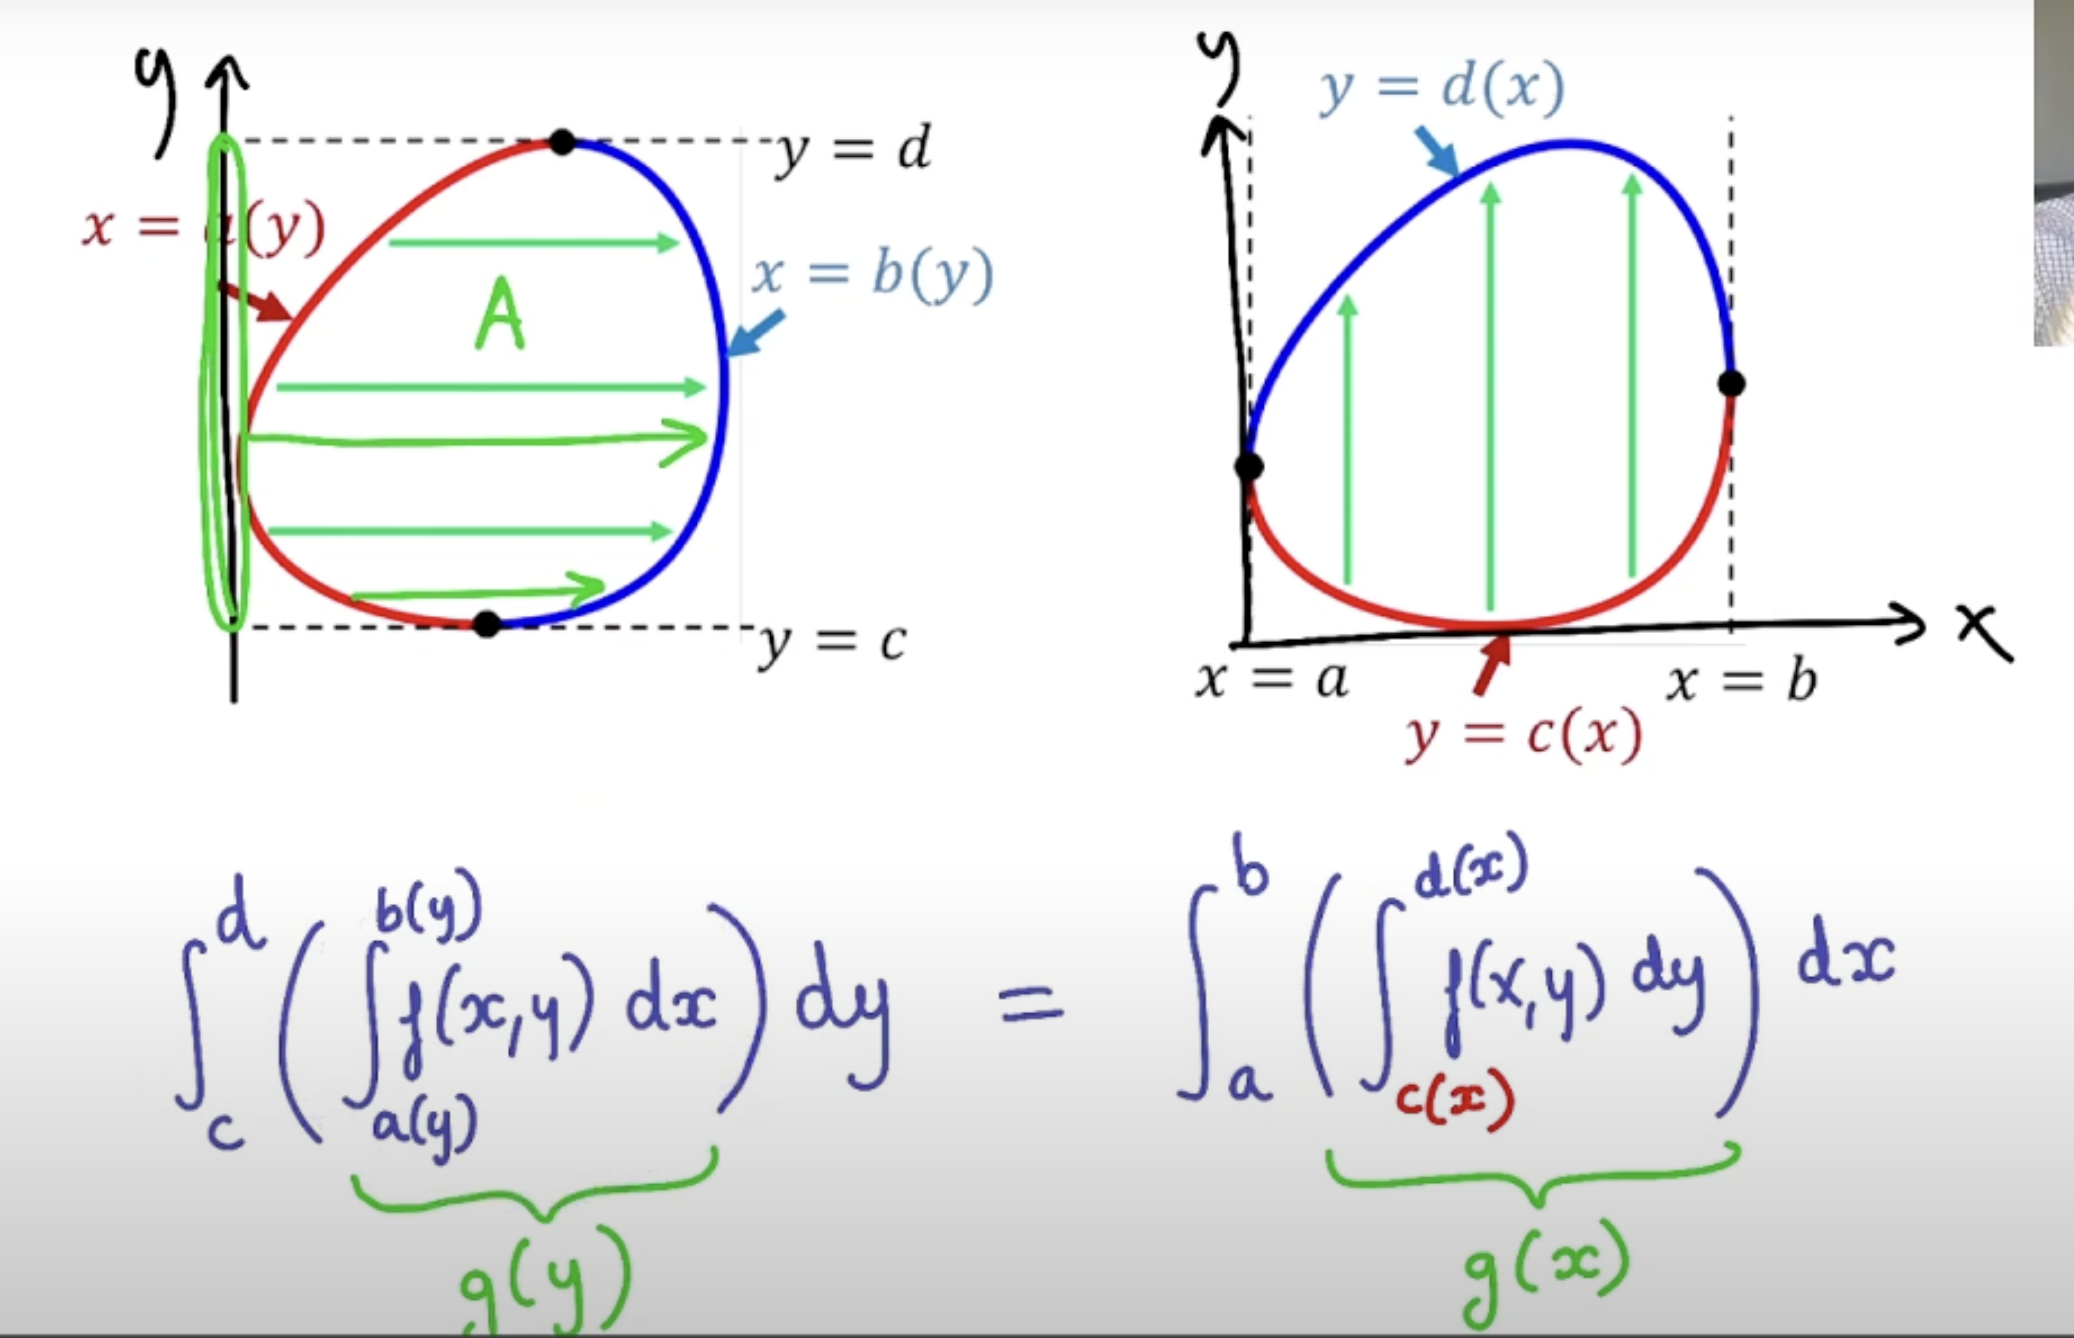 y
y = d
x = a(y)
A
x = b(y)
y = c
y
y = d(x)
x
x = a
x = b
y = c(x)
∫_c^d ( ∫_{a(y)}^{b(y)} f(x,y) dx ) dy = ∫_a^b ( ∫_{c(x)}^{d(x)} f(x,y) dy ) dx
g(y)
g(x)